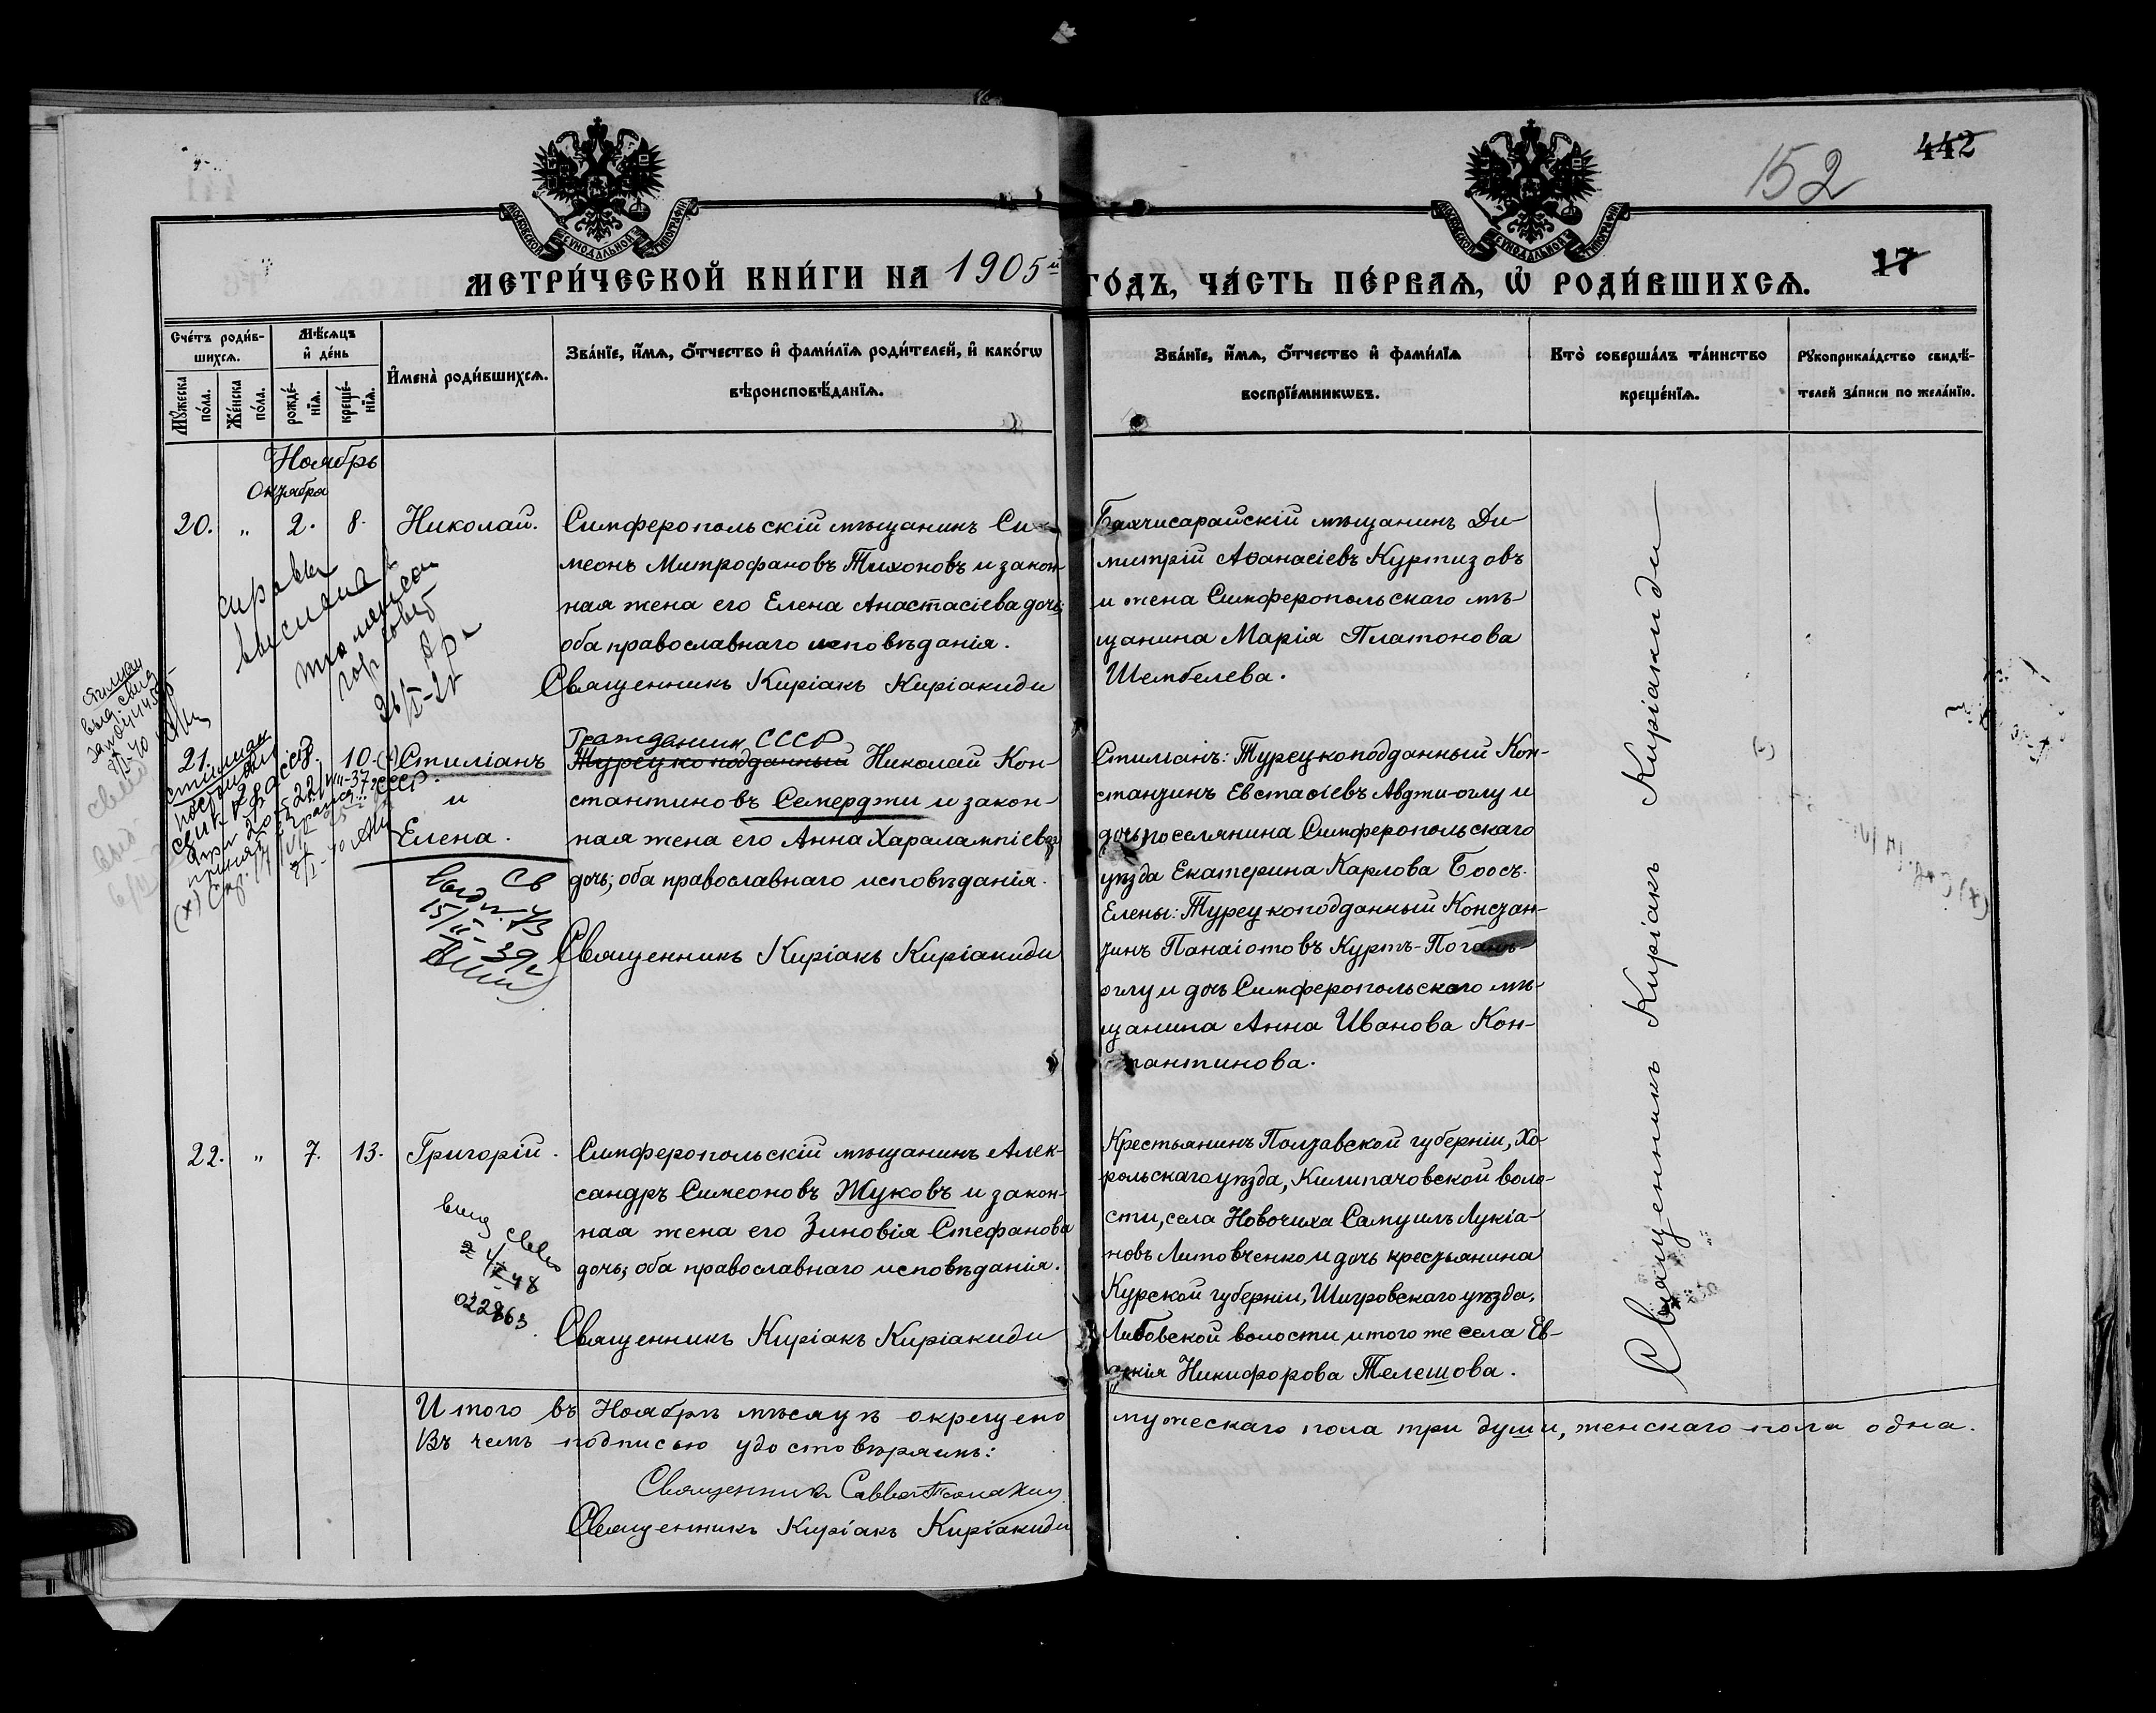 152
442
17
МОСКОВСКОЙ СѴНОДАЛЬНОЙ ТИПОГРАФІИ
МОСКОВСКОЙ СѴНОДАЛЬНОЙ ТИПОГРАФІИ
МЕТРИ́ЧЕСКОЙ КНИ́ГИ НА 1905й ГО́ДЪ, ЧА́СТЬ ПЕ́РВАѦ, Ѡ҆ РОДИ́ВШИХСѦ.
Сче́тъ роди́в-
шихсѧ.
Мꙋ́жеска по́ла.
Же́нска по́ла.
Мѣ́сѧцъ
и҆ де́нь
рожде́-
нїѧ.
креще́-
нїѧ.
И҆мена̀ роди́вшихсѧ.
Зва́нїе, и҆́мѧ, ѻ҆́тчество и҆ фами́лїѧ роди́телей, и҆ како́гѡ
вѣроисповѣ́данїѧ.
Зва́нїе, и҆́мѧ, ѻ҆́тчество и҆ фами́лїѧ
воспрїе́мникѡвъ.
Кто̀ соверша́лъ та́инство
креще́нїѧ.
Рꙋкоприкла́дство свидѣ́-
телей за́писи по жела́нїю.
Ноябрь
Октября
20. " 2. 8. Николай.
Симферопольскій мѣщанинъ Си-
меонъ Митрофановъ Тихоновъ и закон
ная жена его Елена Анастасіева дочь;
оба православнаго исповѣданія.
Священникъ Киріакъ Киріакиди
Бахчисарайскій мѣщанинъ Ди-
митрій Аѳанасіевъ Куртизовъ
и жена Симферопольскаго мѣ-
щанина Марія Платонова
Шембелева.
21. 10. Стиліанъ
и
Елена.
Гражданин СССР
Турецкоподданный Николай Кон-
стантиновъ Семерджи и закон-
ная жена его Анна Харалампіева
дочь; оба православнаго исповѣданія.
Священникъ Киріакъ Киріакиди
СССР.
15/II-39г
Стиліанъ: Турецкоподданный Кон-
стантинъ Евстаѳіевъ Авджи-оглу и
дочь поселянина Симферопольскаго
уѣзда Екатерина Карлова Боосъ.
Елены: Турецкоподданный Констан-
тинъ Панаіотовъ Куртъ-Поганъ-
оглу и дочь Симферопольскаго мѣ-
щанина Анна Иванова Кон-
стантинова.
22. " 7. 13. Григорій.
Симферопольскій мѣщанинъ Алек-
сандръ Симеоновъ Жуковъ и закон-
ная жена его Зиновія Стефанова
дочь; оба православнаго исповѣданія.
Священникъ Киріакъ Киріакиди
022863
Крестьянинъ Полтавской губерніи, Хо-
рольскаго уѣзда, Килипачовской воло-
сти, села Новочиха Самуилъ Лукіа-
новъ Литовченко и дочь крестьянина
Курской губерніи, Шигровскаго уѣзда,
Липовской волости и того же села Ев-
докія Никифорова Телешова.
Священникъ Киріакъ Киріакиди
Итого въ Ноябрѣ мѣсяцѣ окрещено мужескаго пола три души, женскаго пола одна.
Въ чемъ подписью удостовѣряемъ:
Священникъ Савва
Священникъ Киріакъ Киріакиди